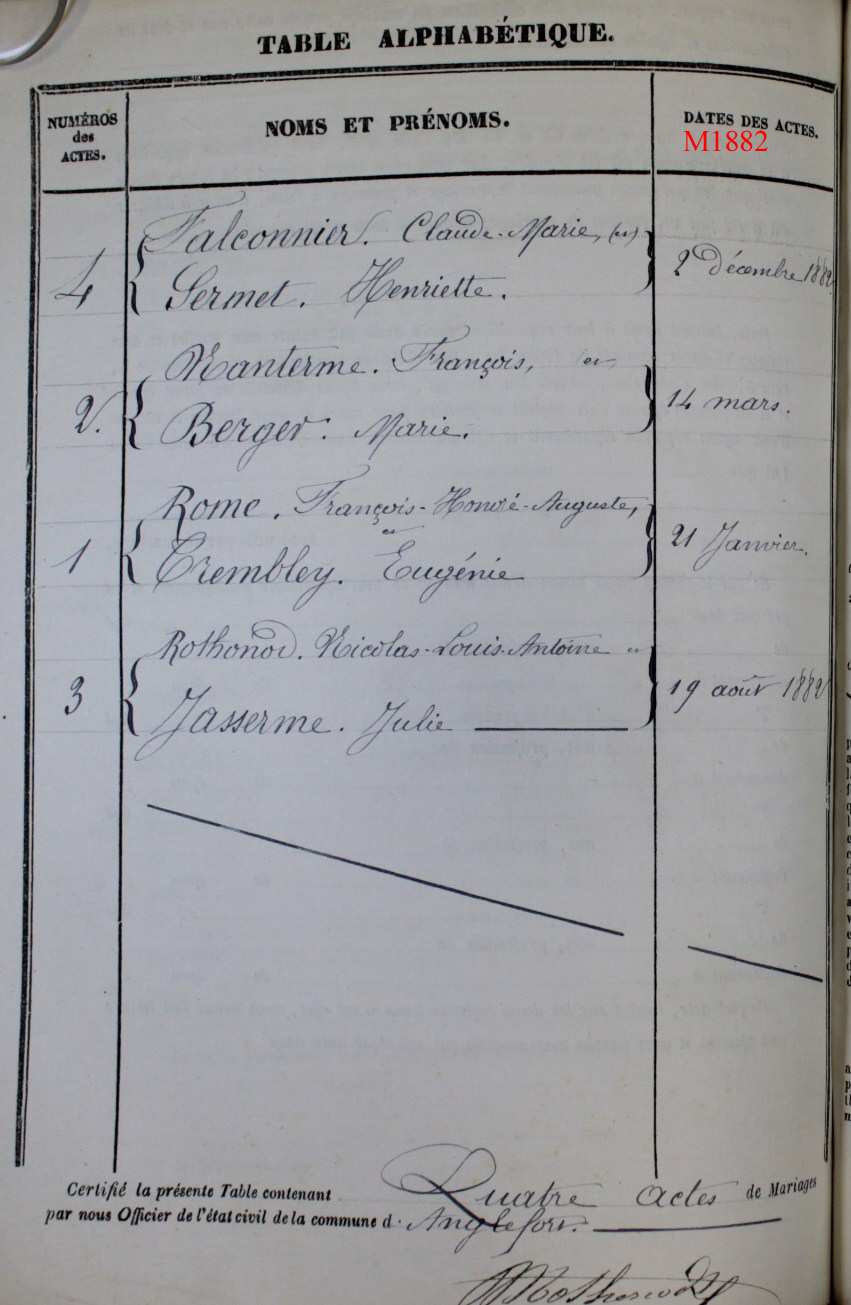 TABLE ALPHABÉTIQUE.
NUMÉROS des ACTES.
NOMS ET PRÉNOMS.
DATES DES ACTES.
M1882
Falconnier. Claude-Marie, (et)
4 2 décembre 1882
Sermet. Henriette.
Nanterme. François, et
2. 14 mars.
Berger. Marie.
Rome. François-Honoré-Auguste,
et
1 21 Janvier.
Trembley. Eugénie
Rothonod. Nicolas-Louis-Antoine et
3 19 août 1882
Jasserme. Julie
Certifié la présente Table contenant Quatre actes de Mariages
par nous Officier de l'état civil de la commune d. Anglefort.